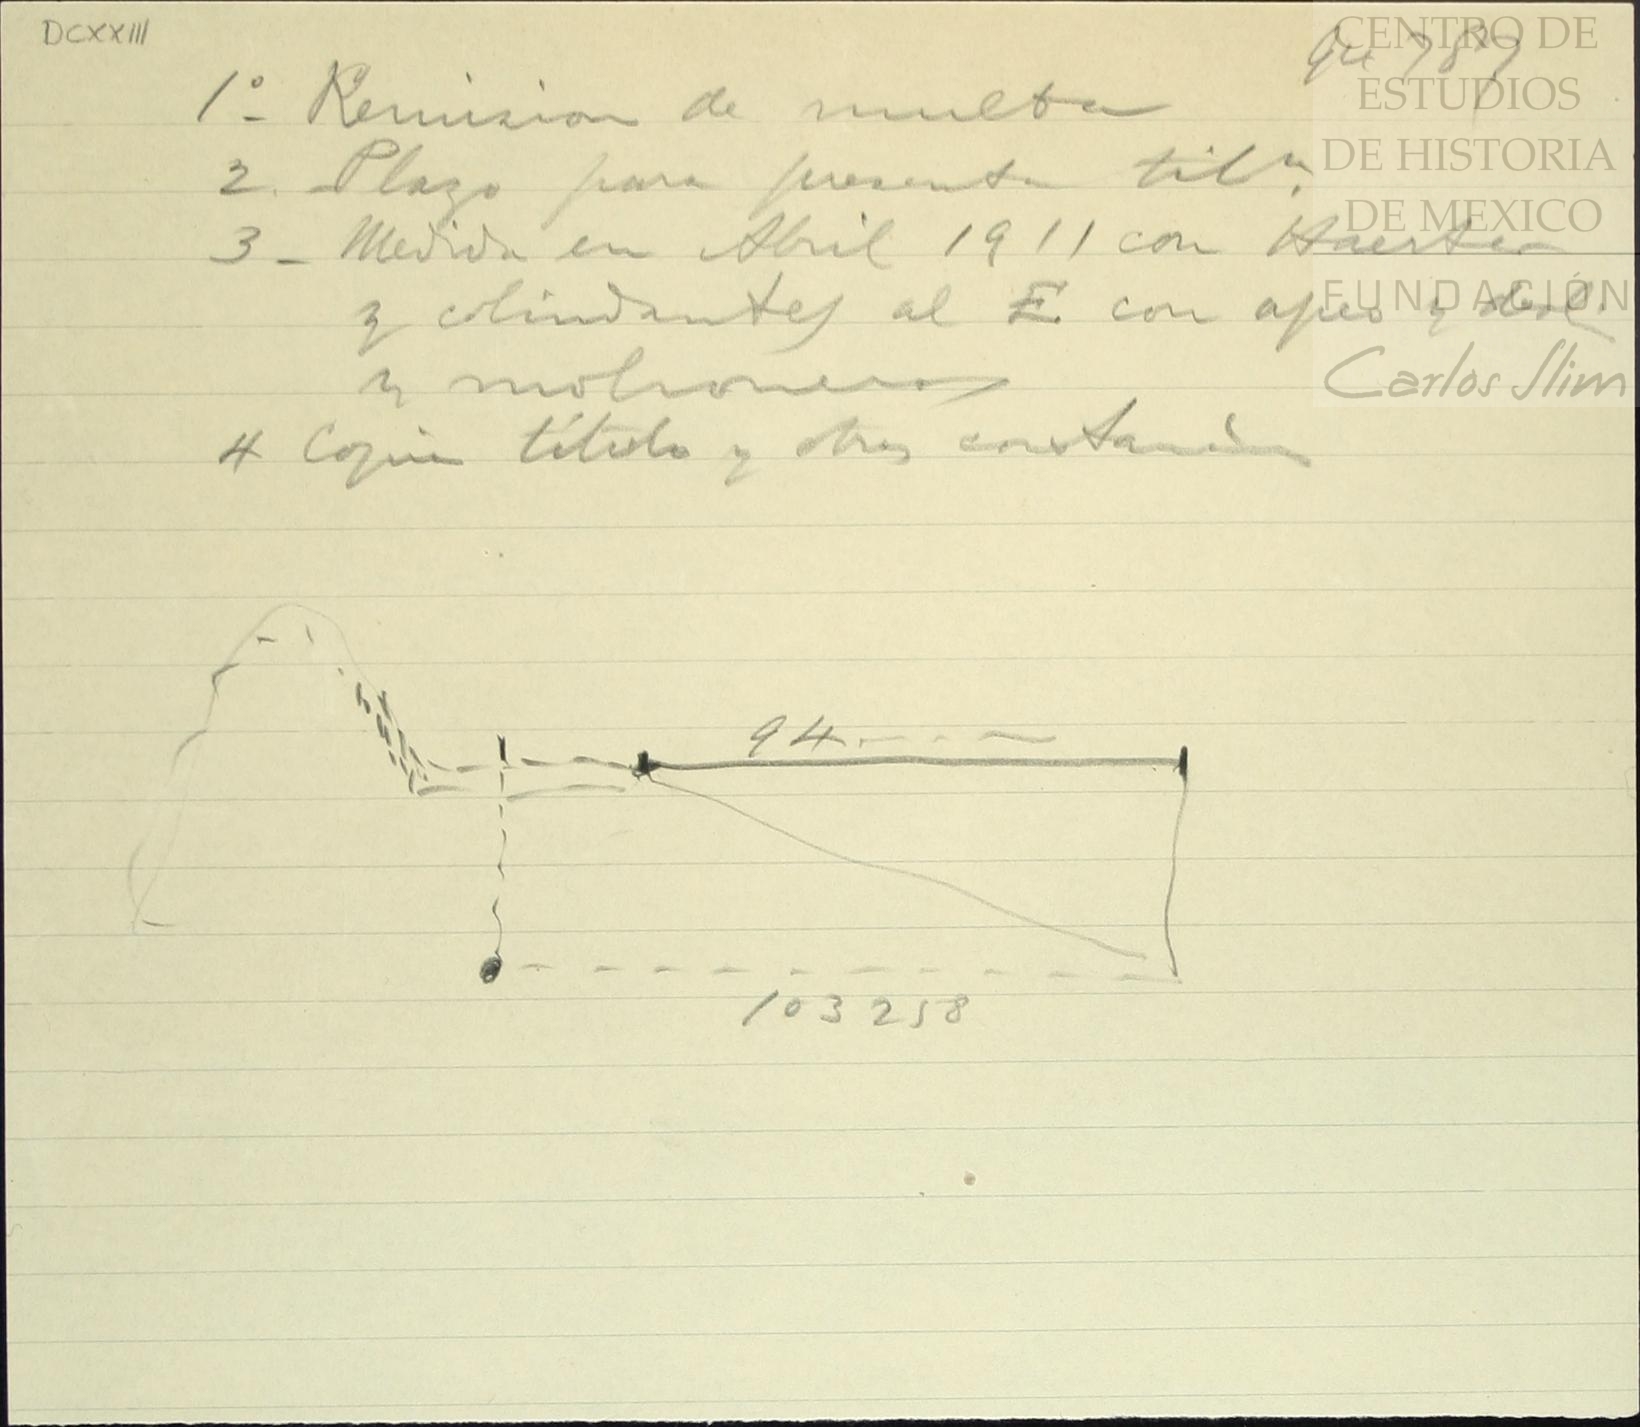 DCXXIII
787
1º- Remision de multa
2. Plazo para presenta
3 - Medida en Abril 1911 con Huerta
y colindantes al E. con apeo y desl.
y mohoneras
4 Copia título y otras constancias
94
103258
CENTRO DE
ESTUDIOS
DE HISTORIA
DE MEXICO
FUNDACIÓN
Carlos Slim